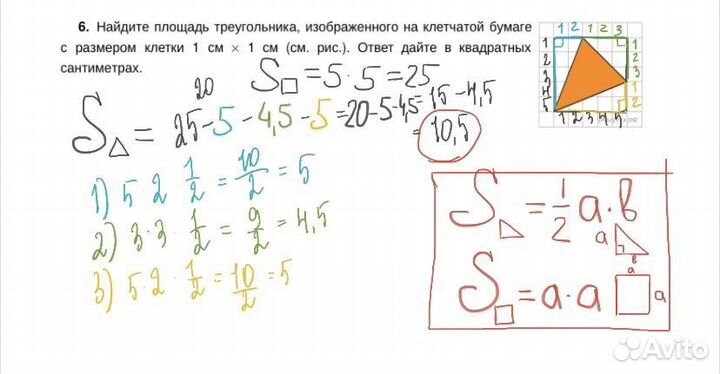 6. Найдите площадь треугольника, изображенного на клетчатой бумаге
с размером клетки 1 см × 1 см (см. рис.). Ответ дайте в квадратных
сантиметрах.
1 2 1 2 3
1 2 3 4 5
1 2 3
1 2
1 2 3 4 5
S□ = 5 · 5 = 25
20
S△ = 25 - 5 - 4,5 - 5 = 20 - 5 - 4,5 = 15 - 4,5
= 10,5
1) 5 · 2 · 1/2 = 10/2 = 5
2) 3 · 3 · 1/2 = 9/2 = 4,5
3) 5 · 2 · 1/2 = 10/2 = 5
S◺ = 1/2 a · в
a
в
S□ = a · a
a
a
Avito